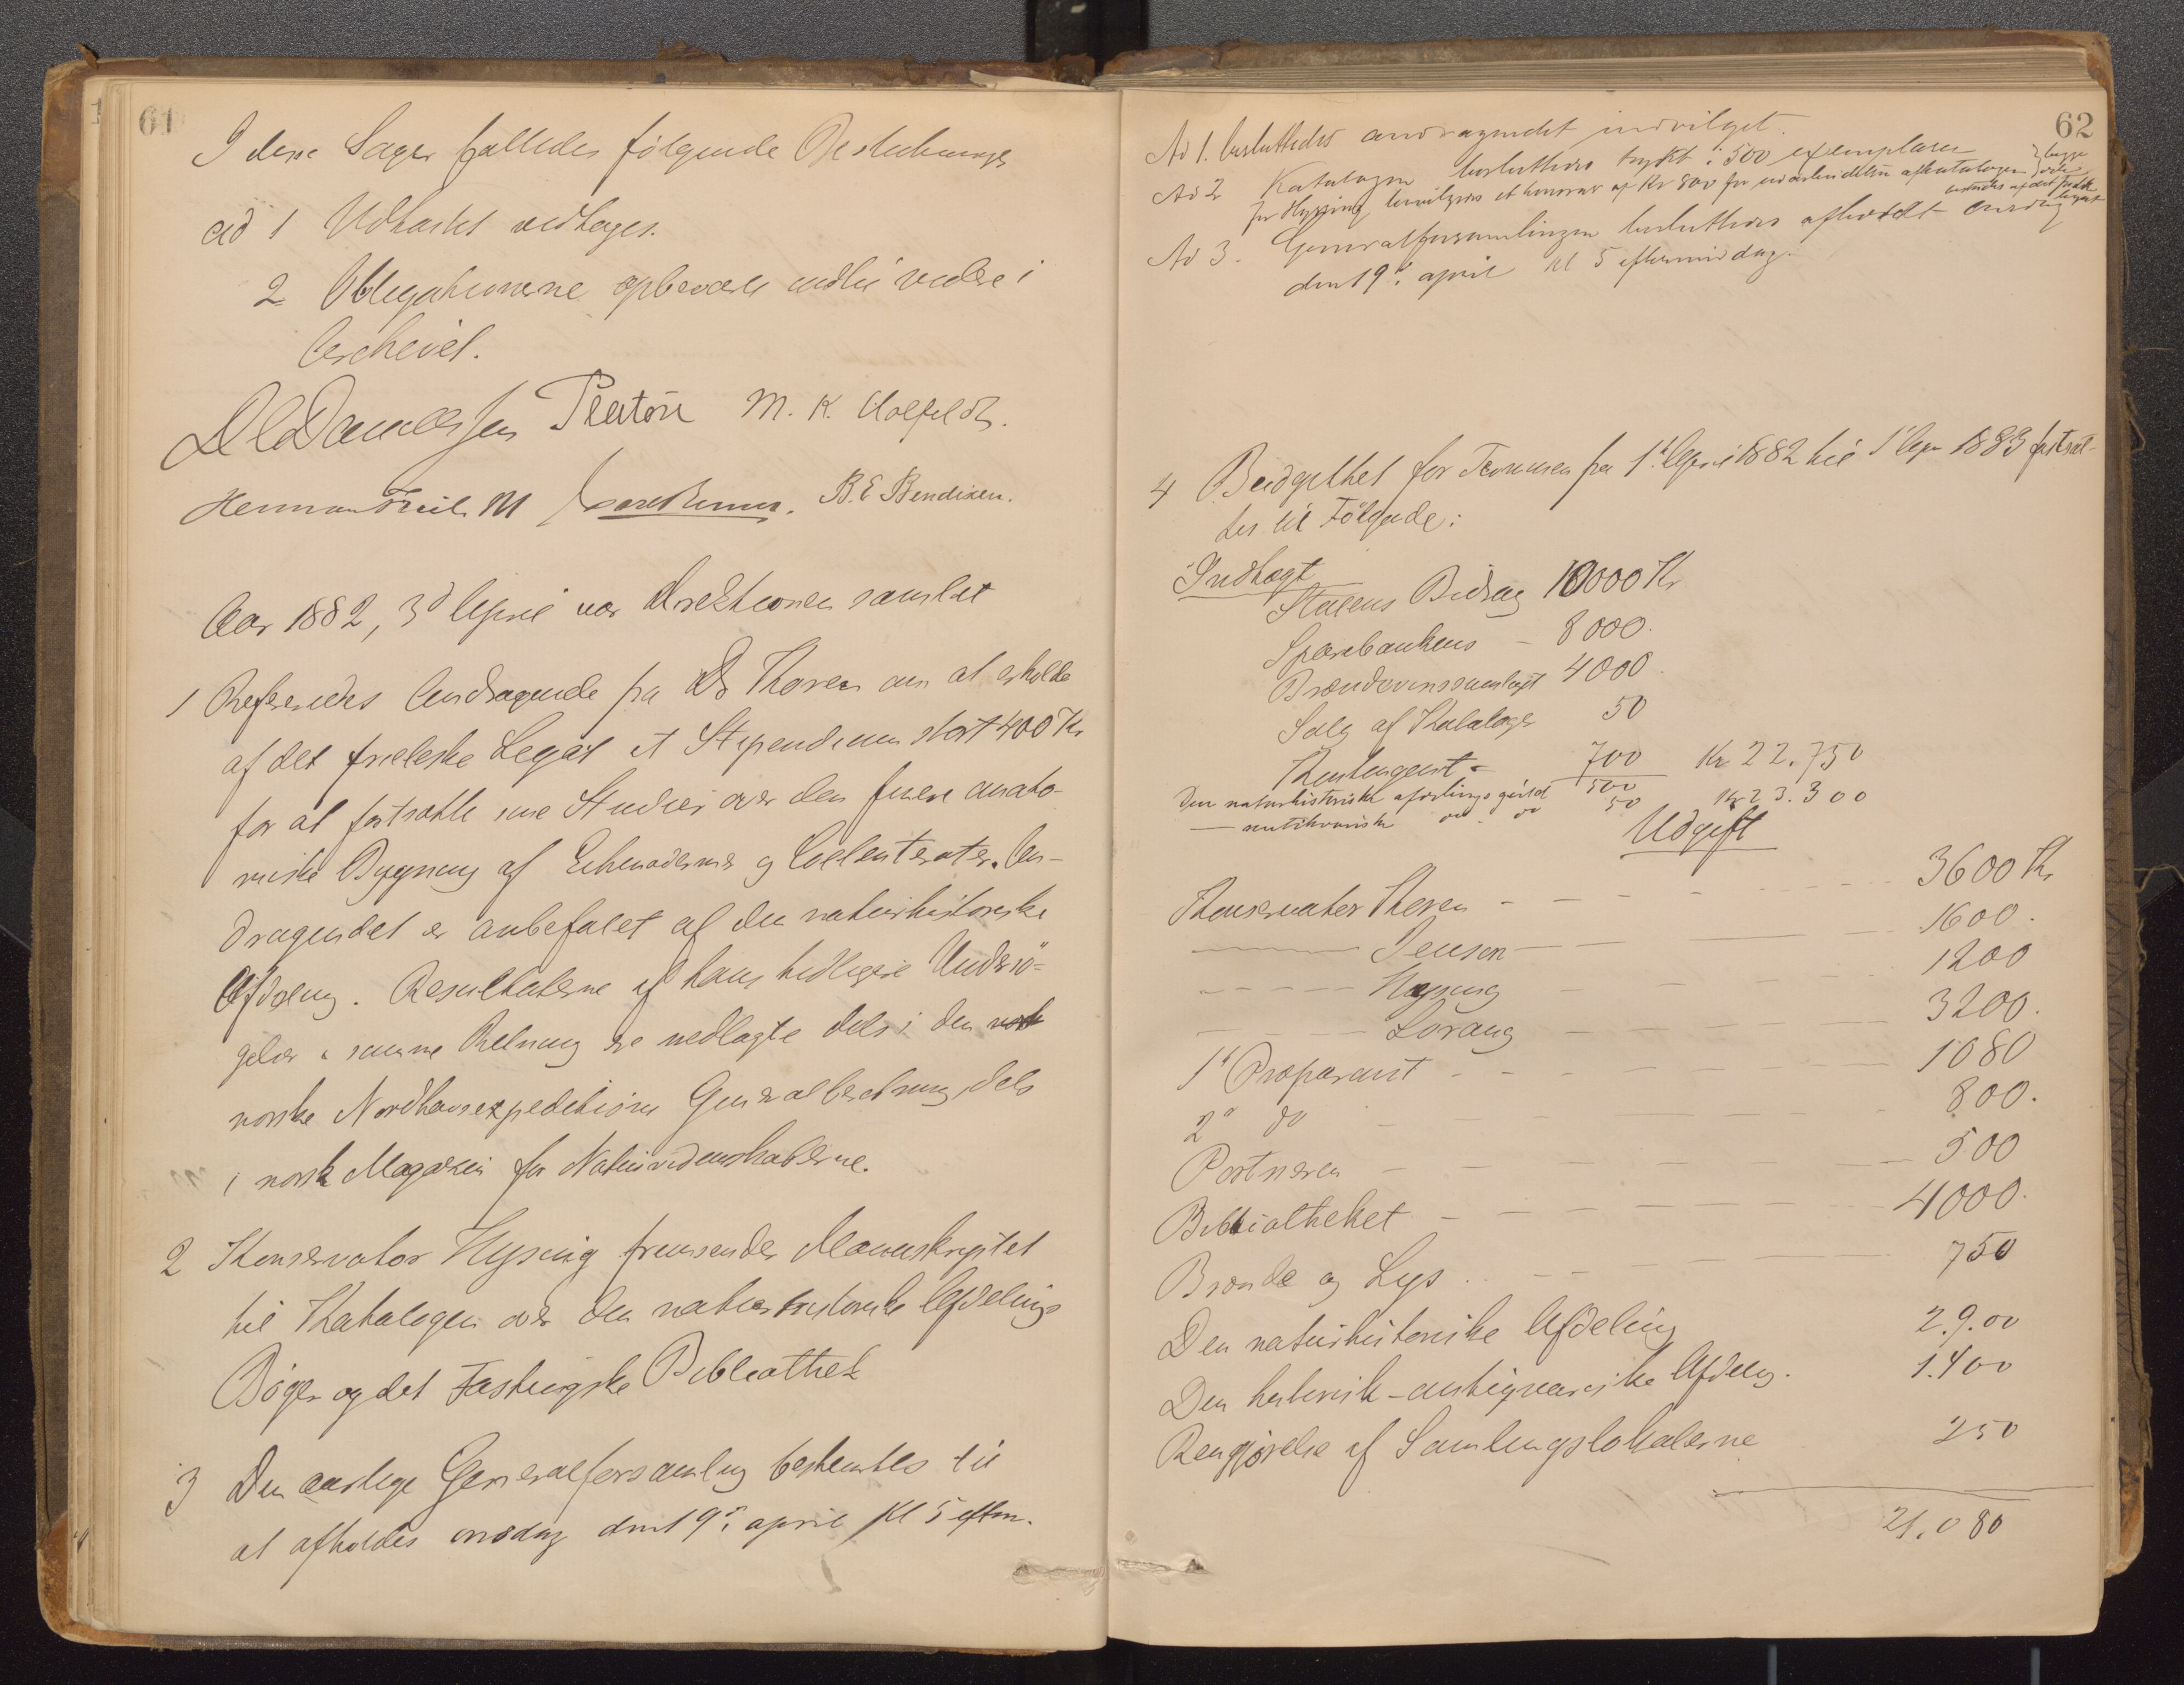 61
I disse Sager fattedes følgende Beslutninger
ad 1 Udkastet vedtages.
2 Obligationerne opbevares indtil videre i
Archivet.
DCDanielssen Platou M. K. Holfeldt.
Herman Friele M B. E. Bendixen.
Aar 1882, 3d April var Direktionen samlet
1 Refereredes Andragende fra Dr Koren om at erholde
af det frieleske Legat et Stipendium stort 400 Kr
for at fortsætte sine Studier over den finere anato-
miske Bygning af Echinodermer og Coelenterater. An-
dragendet er anbefalet af den naturhistoriske
Afdeling. Resultaterne af hans tidligere Undersø-
gelser i samme Retning ere nedlagte dels i den
norske Nordhavsexpeditions Generalberetning, dels
i norsk Magazin for Naturvidenskaberne.
2 Konservator Hysing fremsender Manuskriptet
til Katalogen over den naturhistoriske Afdelings
Bøger og det Fastingske Bibliothek
3 Den aarlige Generalforsamling bestemtes til
at afholdes onsdag den 19de april Kl 5 eftm.
62
Ad 1. besluttedes andragendet indvilget.
Ad 2 Katalogen besluttedes trykt i 500 exemplarer
for Hysing bevilgedes et honorar af Kr 800 for udarbeidelsen af katalogen
Ad 3. Generalforsamlingen besluttedes afholdt onsdag
den 19de april kl 5 eftermiddag.
4 Budgettet for Terminen fra 1ste April 1882 til 1 Apr 1883 fastsæt-
tes til Følgende:
Indtægt
Statens Bidrag 10000 Kr
Sparebankens – 8000.
Brændevinssamlaget 4000.
Salg af Kataloger 50
Kontingent – 700 Kr 22.750
Den naturhistoriske afdelings gjæld 500 Kr 23.300
— antikvariske do. do 50
Udgift
Konservator Koren – – – 3600 Kr
— Jensen – – 1600.
— Hysing – – 1200
— Lorange – – 3200.
1st Præparant – – – 1080
2d do – – – 800.
Portneren – – – 500
Bibliotheket – – – 4000.
Brænde og Lys – – – 750
Den naturhistoriske Afdeling 2.900
Den historisk-antiquariske Afdeling. 1.400
Rengjørelse af Samlingslokalerne 250
21.080